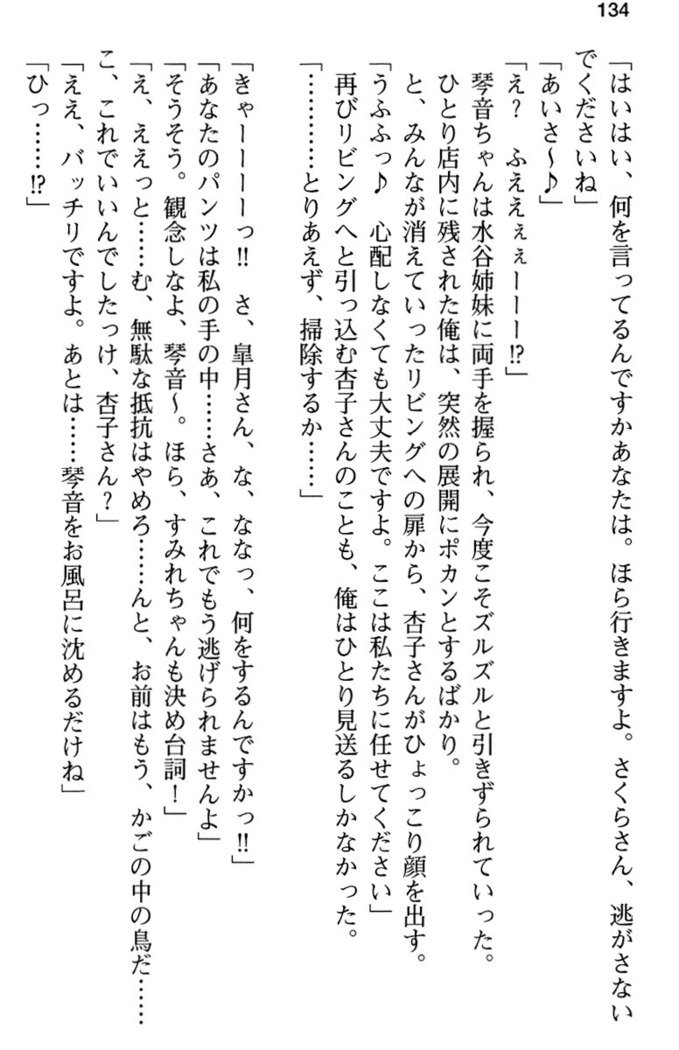 134
「はいはい、何を言ってるんですかあなたは。ほら行きますよ。さくらさん、逃がさない
でくださいね」
「あいさ～♪」
「え？　ふええぇぇーーー!?」
琴音ちゃんは水谷姉妹に両手を握られ、今度こそズルズルと引きずられていった。
ひとり店内に残された俺は、突然の展開にポカンとするばかり。
と、みんなが消えていったリビングへの扉から、杏子さんがひょっこり顔を出す。
「うふふっ♪　心配しなくても大丈夫ですよ。ここは私たちに任せてください」
再びリビングへと引っ込む杏子さんのことも、俺はひとり見送るしかなかった。
「…………とりあえず、掃除するか……」
「きゃーーーーっ!!　さ、皐月さん、な、ななっ、何をするんですかっ!!」
「あなたのパンツは私の手の中……さあ、これでもう逃げられませんよ」
「そうそう。観念しなよ、琴音～。ほら、すみれちゃんも決め台詞！」
「え、ええっと……む、無駄な抵抗はやめろ……んと、お前はもう、かごの中の鳥だ……
こ、これでいいんでしたっけ、杏子さん？」
「ええ、バッチリですよ。あとは……琴音をお風呂に沈めるだけね」
「ひっ……!?」